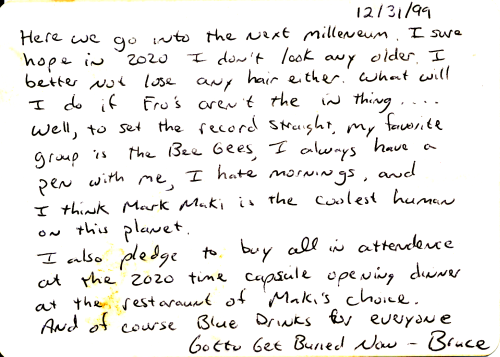 12/31/99
Here we go into the next milleneum. I sure
hope in 2020 I don't look any older. I
better not lose any hair either. What will
I do if Fro's aren't the in thing....
Well, to set the record straight, my favorite
group is the Bee Gees, I always have a
pen with me, I hate mornings, and
I think Mark Maki is the coolest human
on this planet.
I also pledge to buy all in attendence
at the 2020 time capsule opening dinner
at the restaraunt of Maki's choice.
And of course Blue Drinks for everyone
Gotta Get Buried Now - Bruce